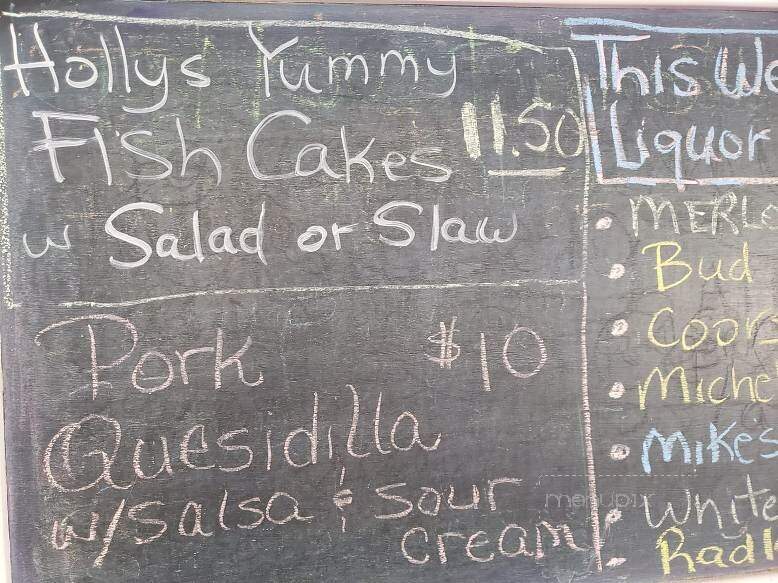 Hollys Yummy
Fish Cakes 11.50
w Salad or Slaw
Pork $10
Quesidilla
w/Salsa & Sour
cream
This We
Liquor
• MERLO
• Bud
• Coors
• Miche
• Mikes
• White
• Radl
menupix